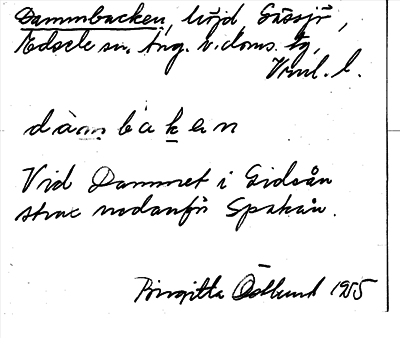 Dammbacken, höjd, Gåssjö,
Edsele sn, Ång. v. doms. tg,
Vnl. l.
dàmbakan
Vid Dammet i Gidsån
strax nedanför Spakån.
Birgitta Östlund 1955